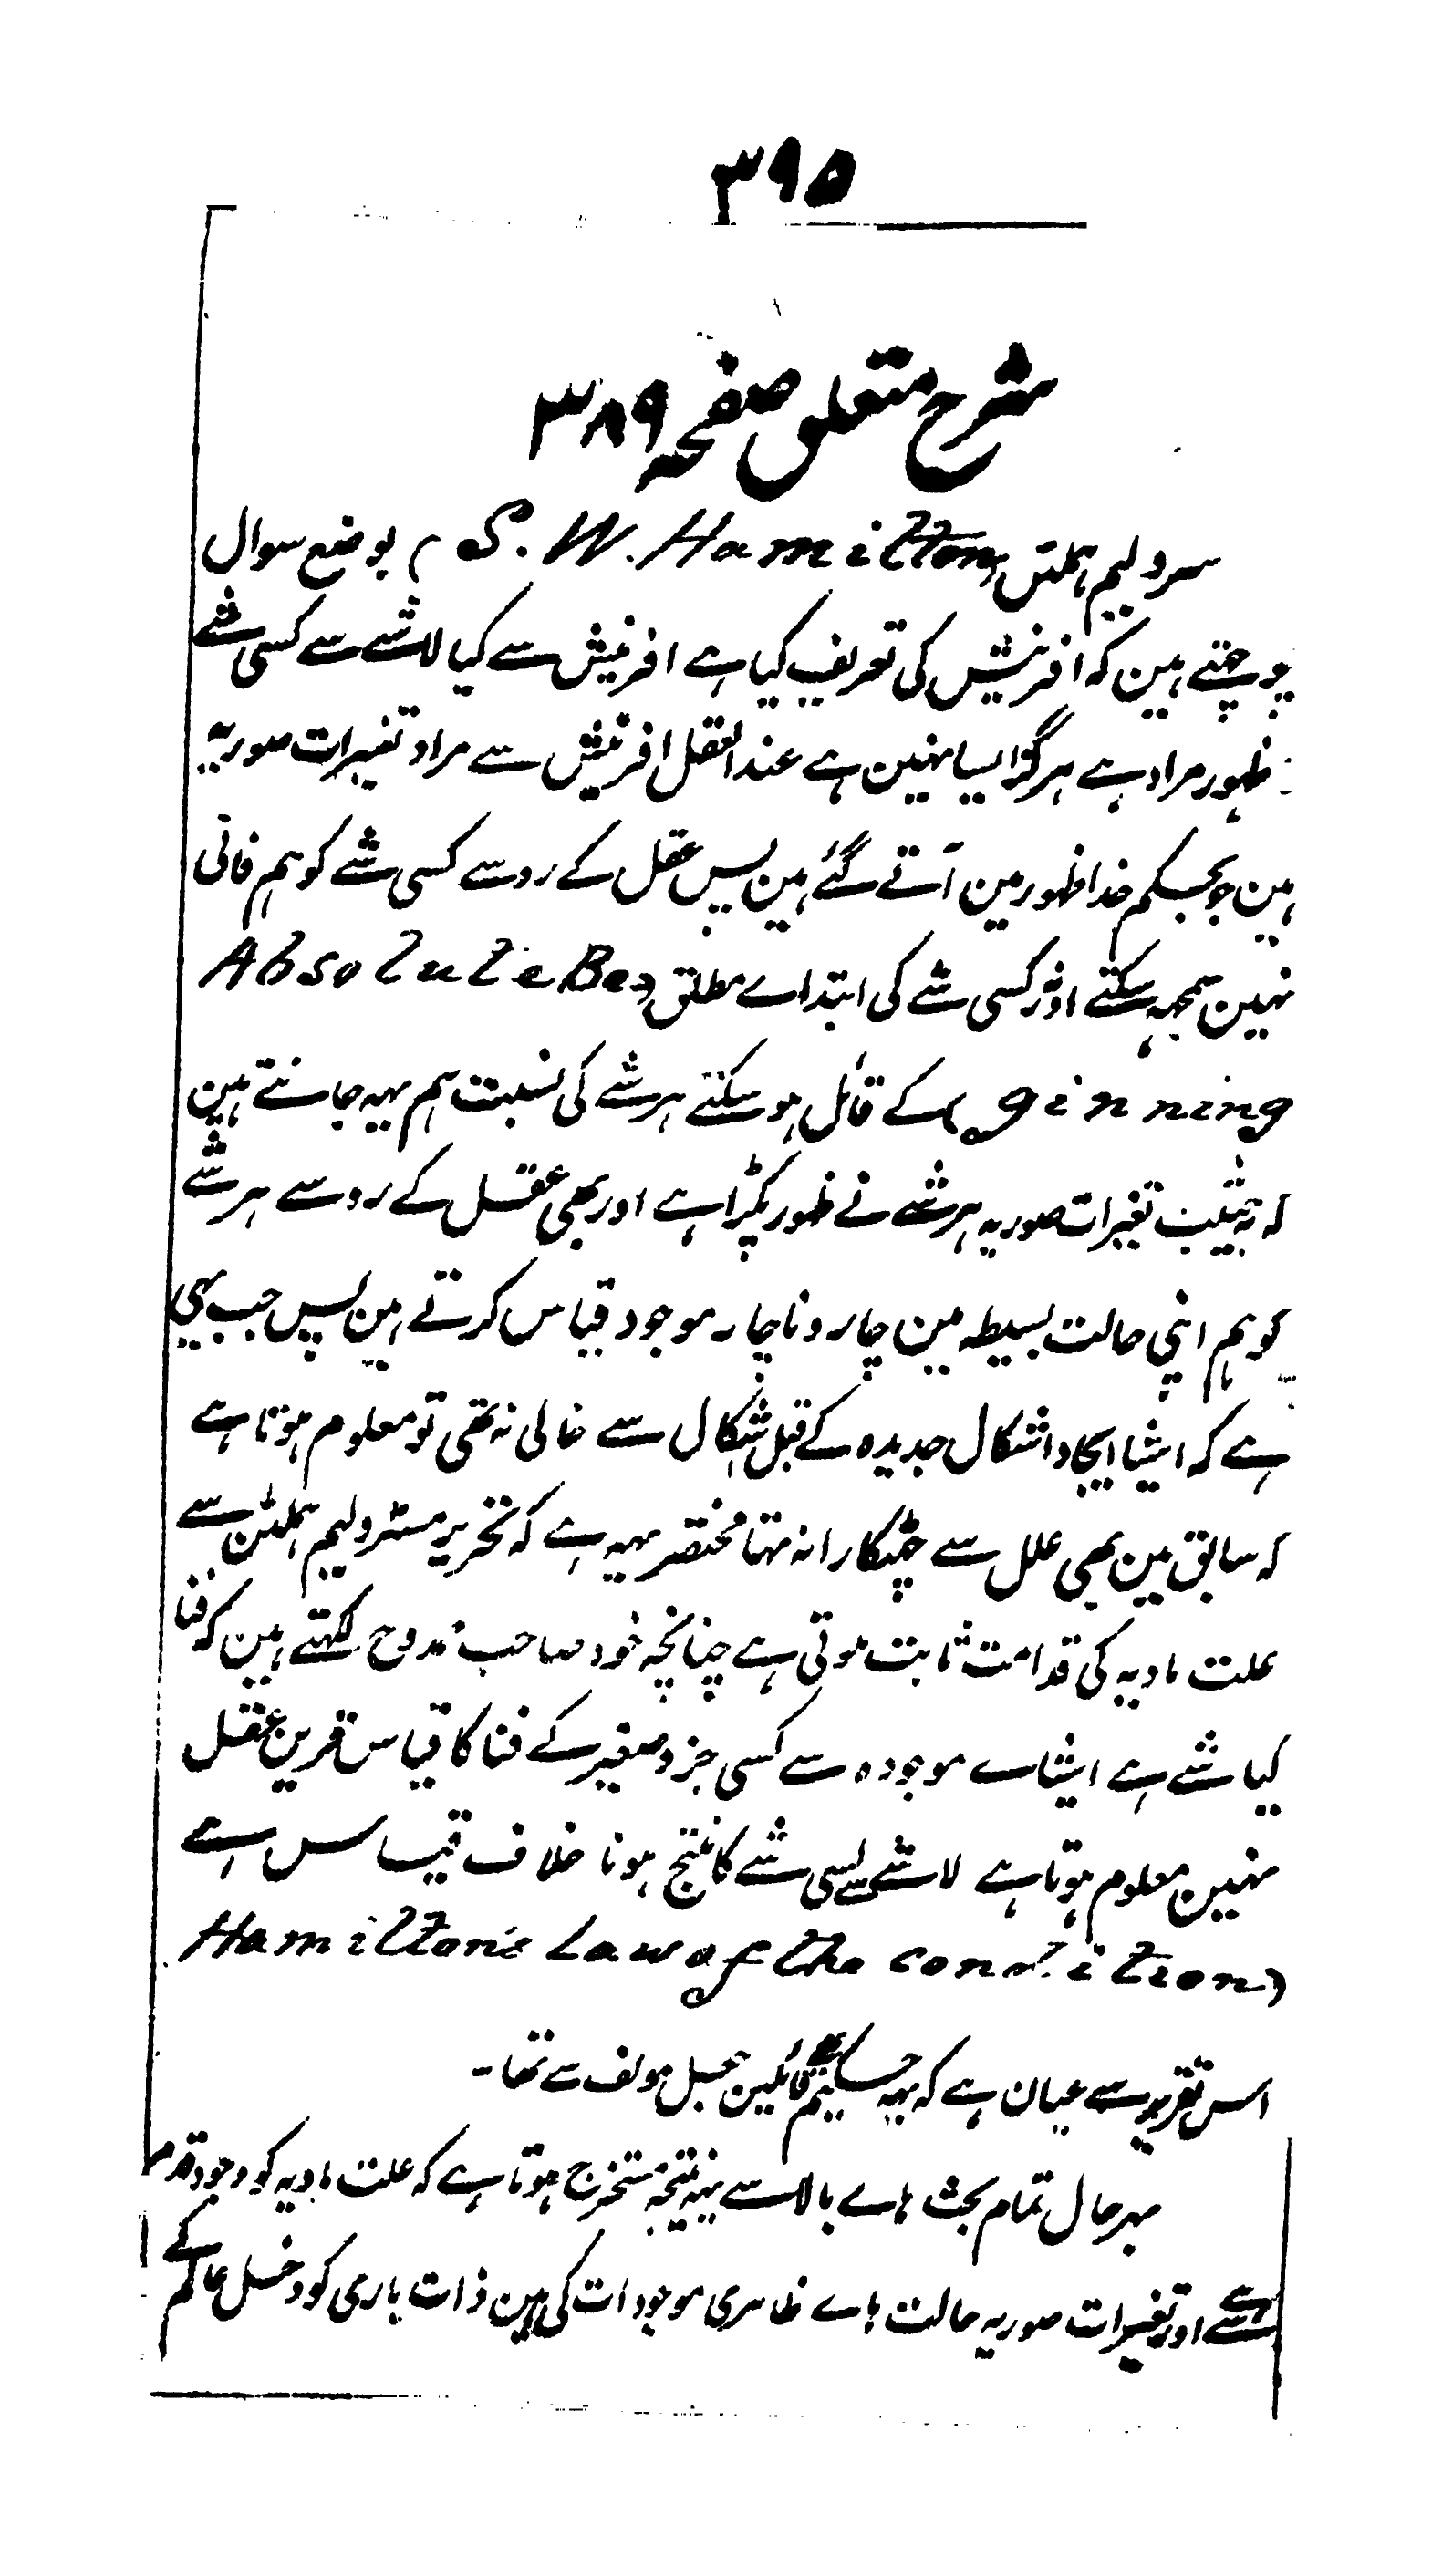 ۳۹۵
شرح متعلق صفحہ ۳۸۹
سر ولیم ہملٹن (S. W. Hamilton) بوضع سوال
پوچھتے ہین کہ افرنیش کی تعریف کیا ہے افرنیش سے کیا لاشے سے کسی شے
ظہور مراد ہے ہرگز ایسا نہین ہے عند العقل افرنیش سے مراد تغیرات صوریہ
ہین جو بحکم خدا ظہور مین آتے گئے ہین پس عقل کے رو سے کسی شے کو ہم فانی
نہین سمجہہ سکتے اور نہ کسی شے کی ابتداے مطلق (Absolute Be
ginning) کے قائل ہو سکتے ہر شے کی نسبت ہم یہہ جانتے ہین
کہ بہ تغیرات صوریہ ہر شے نے ظہور پکڑا ہے اور بھی عقل کے رو سے ہر شے
کو ہم اپنی حالت بسیطہ مین چار و ناچار موجود قیاس کرتے ہین پس جب یہی
ہے کہ اشیا ایجاد اشکال جدیدہ کے قبل اشکال سے خالی نہ تھی تو معلوم ہوتا ہے
کہ سابق مین بھی علل سے چٹکارا نہ تہا مختصر یہہ ہے کہ تحریر مسٹر ولیم ہملٹن سے
علت مادیہ کی قدامت ثابت ہوتی ہے چنانچہ خود صاحب ممدوح لکھتے ہین کہ فنا
کیا شے ہے اشیاے موجودہ سے کسی جزو صغیر کے فنا کا قیاس قرین عقل
نہین معلوم ہوتا ہے لاشے سے کسی شے کا منتج ہونا خلاف قیاس ہے
Hamilton's Law of the condition)
اس تقریر سے عیان ہے کہ یہہ حکیم قائلین جعل مولف سے تھا۔
بہرحال تمام بحث ہاے بالا سے یہہ نتیجہ مستخرج ہوتا ہے کہ علت مادیہ کو وجود قدم
ہے اور تغیرات صوریہ حالت ہاے ظاہری موجودات کی ہین ذات باری کو دخل عالم کے